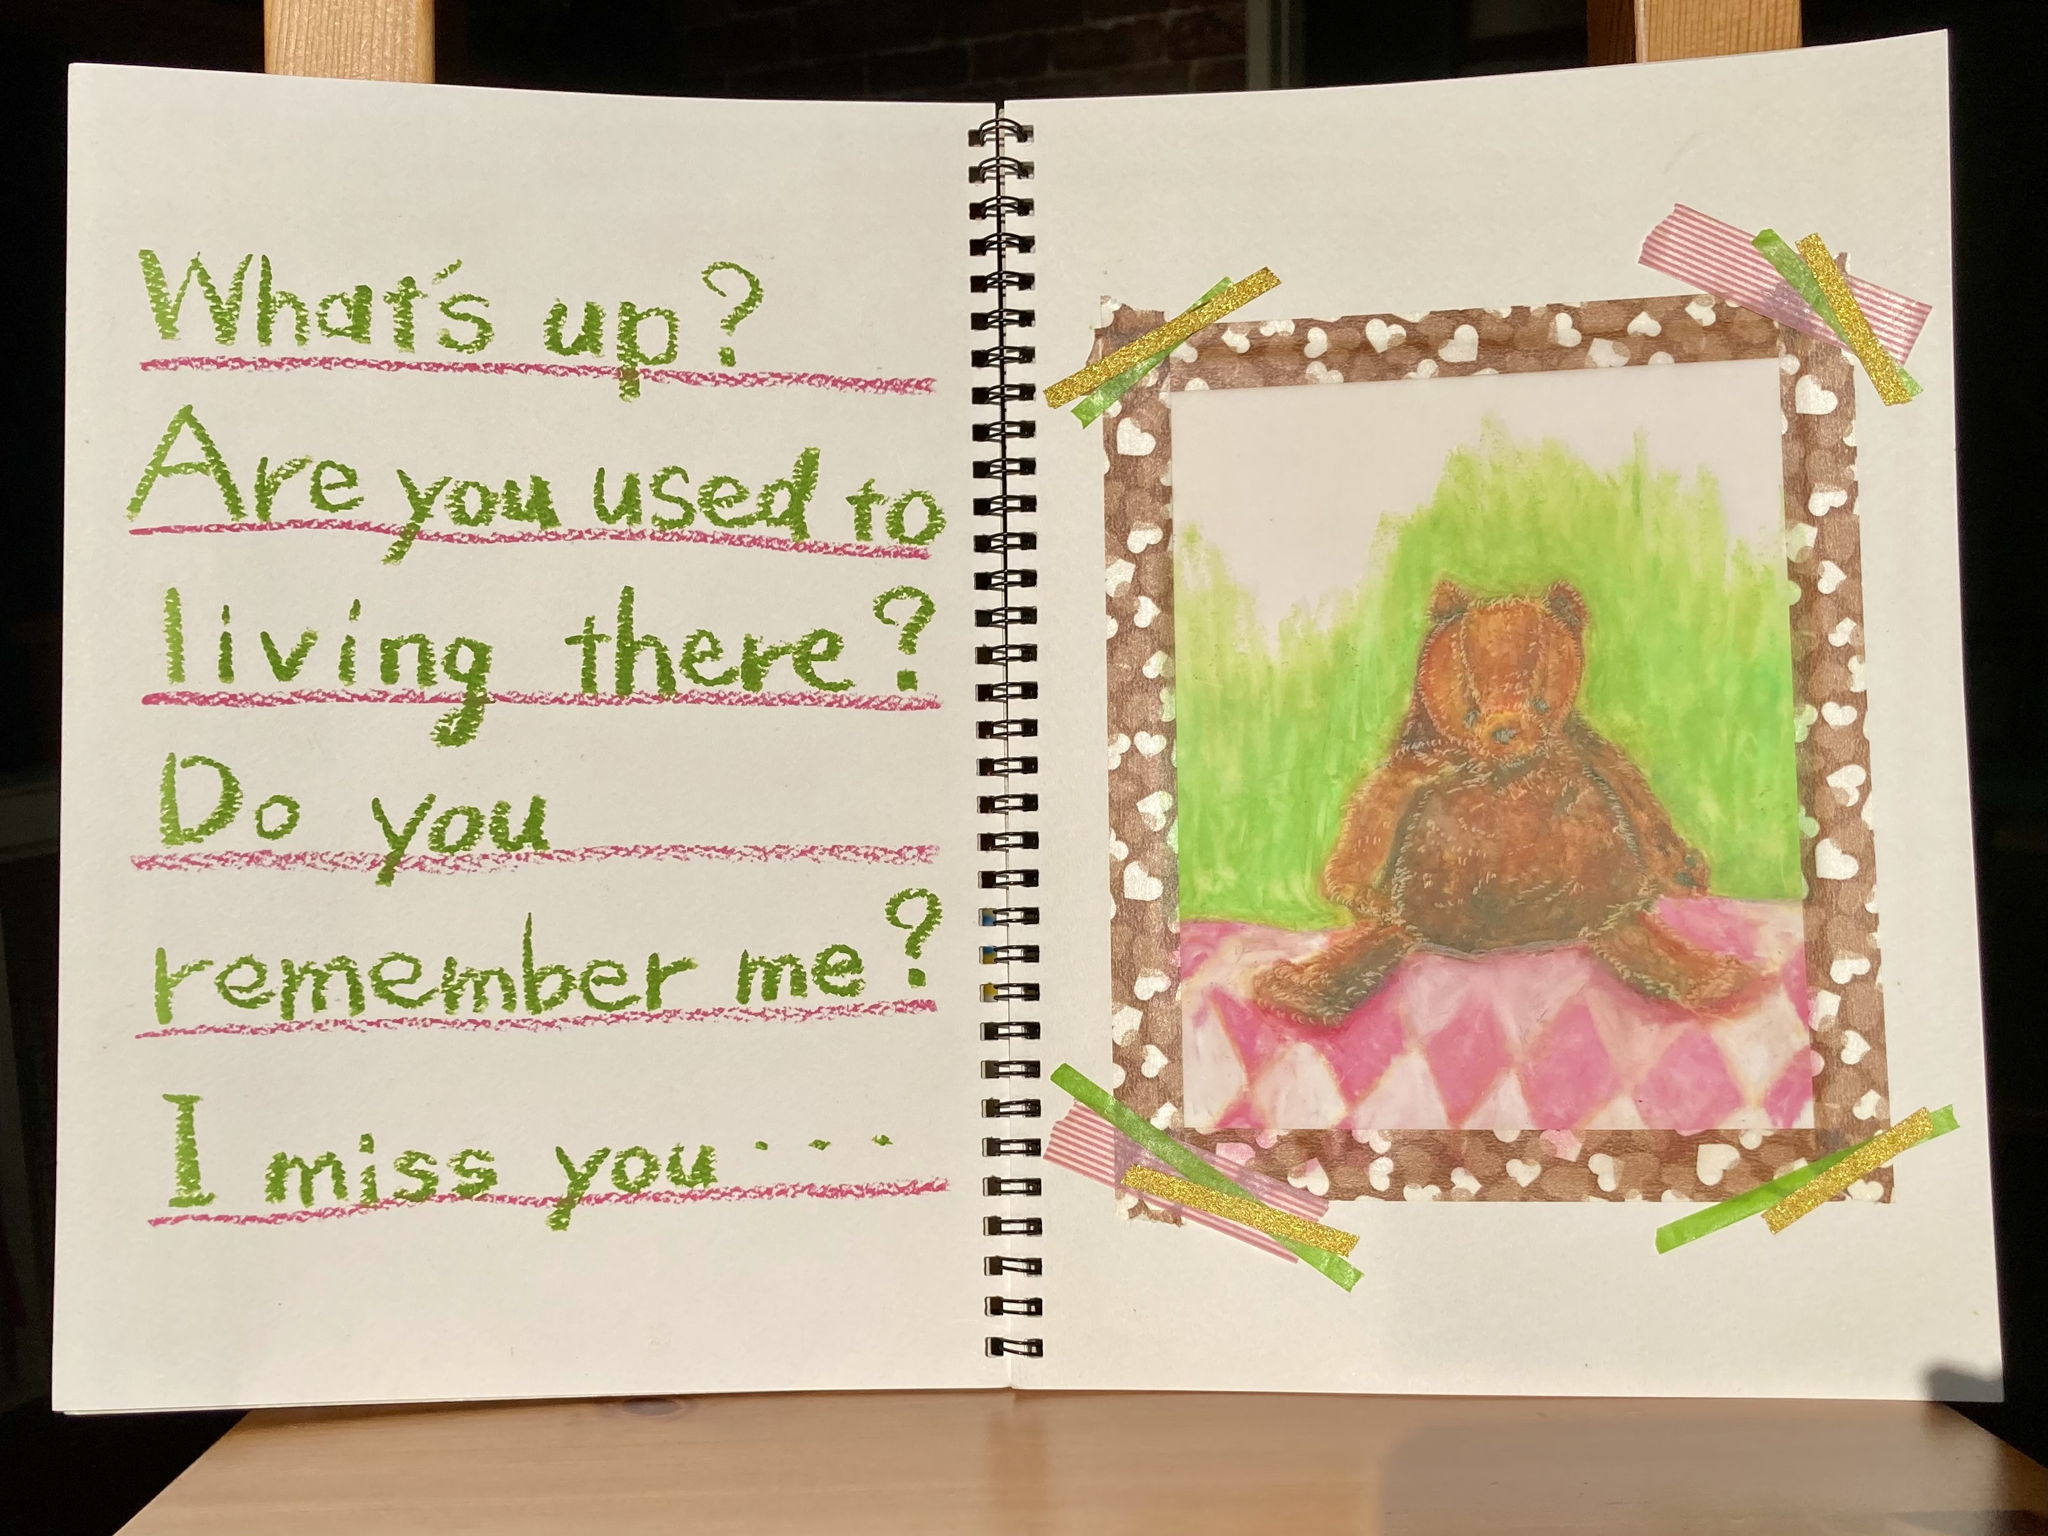 What's up?
Are you used to
living there?
Do you
remember me?
I miss you...